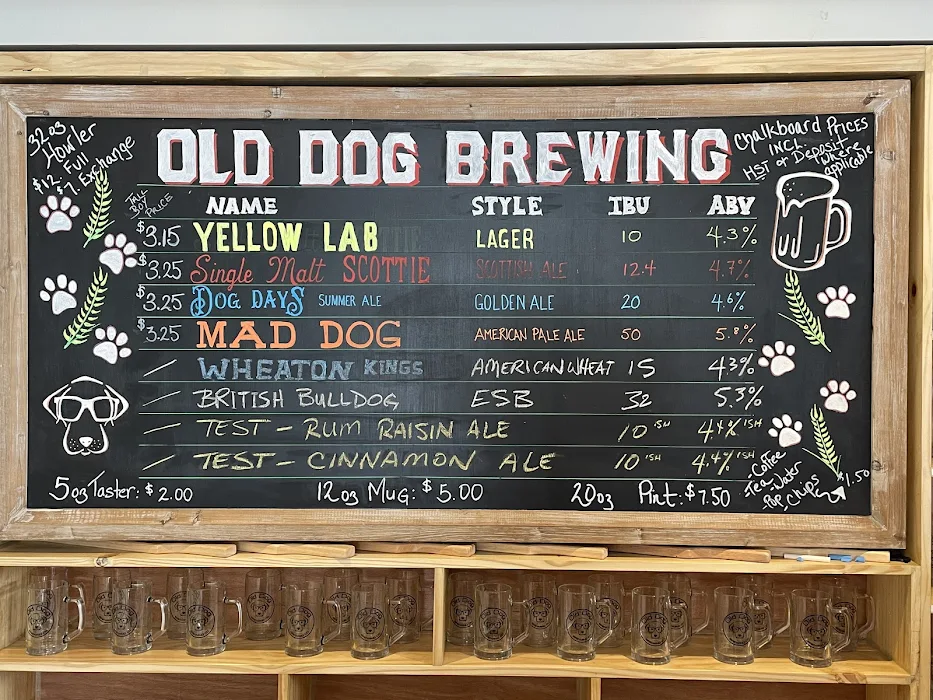 32oz
Howler
$12. Full
$7. Exchange
OLD DOG BREWING
Chalkboard Prices
INCL.
HST or Deposit
where
applicable
TALL
BOY
PRICE
NAME STYLE IBU ABV
$3.15 YELLOW LAB LAGER 10 4.3%
$3.25 Single Malt SCOTTIE SCOTTISH ALE 12.4 4.7%
$3.25 DOG DAYS SUMMER ALE GOLDEN ALE 20 4.6%
$3.25 MAD DOG AMERICAN PALE ALE 50 5.8%
/ WHEATON KINGS AMERICAN WHEAT 15 4.3%
/ BRITISH BULLDOG ESB 32 5.3%
/ TEST - RUM RAISIN ALE 10 ISH 4.4% ISH
/ TEST - CINNAMON ALE 10 ISH 4.4% ISH
5oz Taster: $2.00 12oz MUG: $5.00 20oz Pint: $7.50
Tea, Coffee
- Water
- Pop, Chips
$1.50